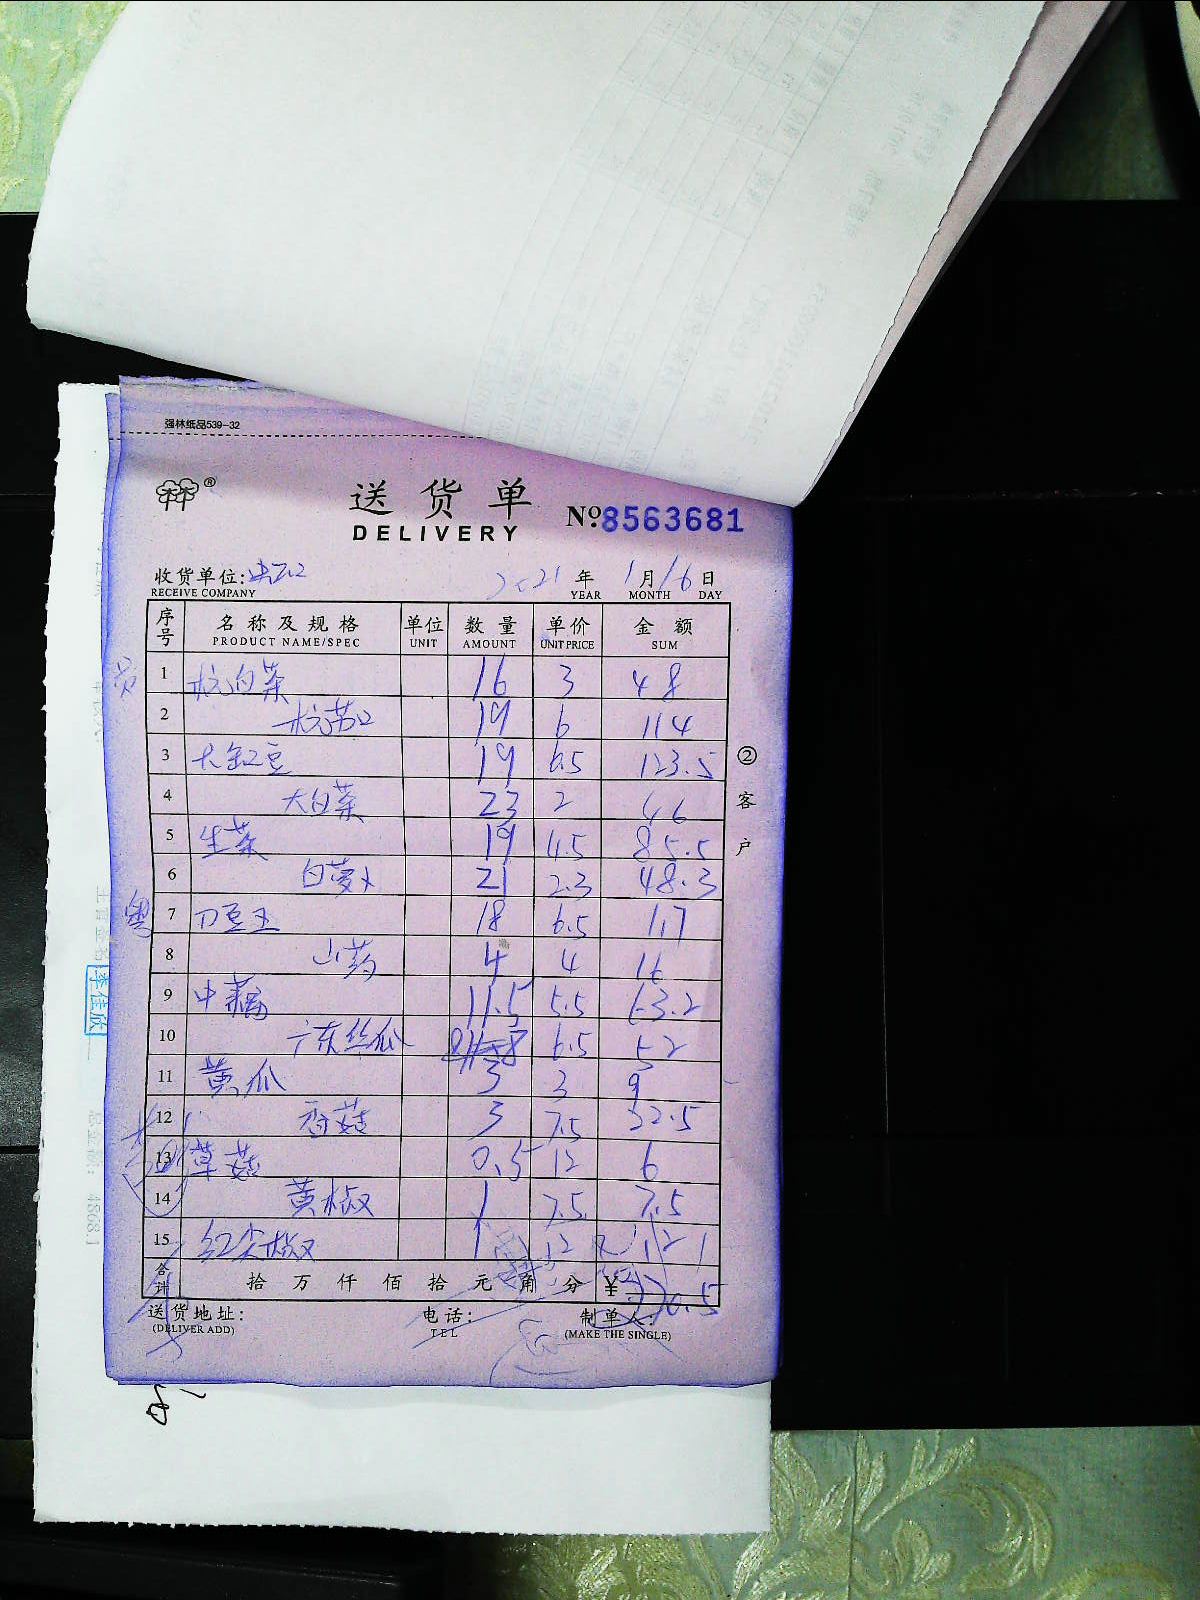 强林纸品539-32
®
送货单
DELIVERY
№8563681
收货单位:
RECEIVE COMPANY
2021 年 1 月 16 日
YEAR MONTH DAY
序号 名称及规格 单位 数量 单价 金额
PRODUCT NAME/SPEC UNIT AMOUNT UNIT PRICE SUM
1 杭白菜 16 3 48
2 19 6 114
3 大豇豆 19 6.5 123.5
4 大白菜 23 2 46
5 生菜 19 4.5 85.5
6 白萝卜 21 2.3 48.3
7 刀豆 18 6.5 117
8 山药 4 4 16
9 中藕 11.5 5.5 63.2
10 广东丝瓜 8 6.5 52
11 黄瓜 3 3 9
12 香菇 3 7.5 22.5
13 草菇 0.5 12 6
14 黄椒 1 7.5 7.5
15 红尖椒 1 12 12
合计 拾 万 仟 佰 拾 元 角 分 ¥
送货地址:
(DELIVER ADD)
电话:
TEL
制单人:
(MAKE THE SINGLE)
②客户
李佳欣
总金额: 4868.1